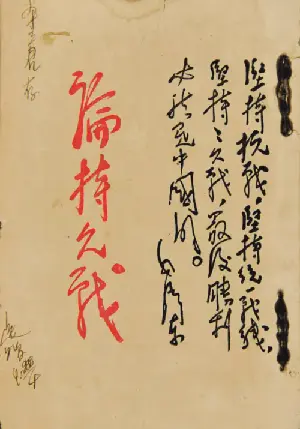 坚持抗战,坚持统一战线,
坚持持久战,最后胜利
必然是中国的。
毛泽东
論持久战